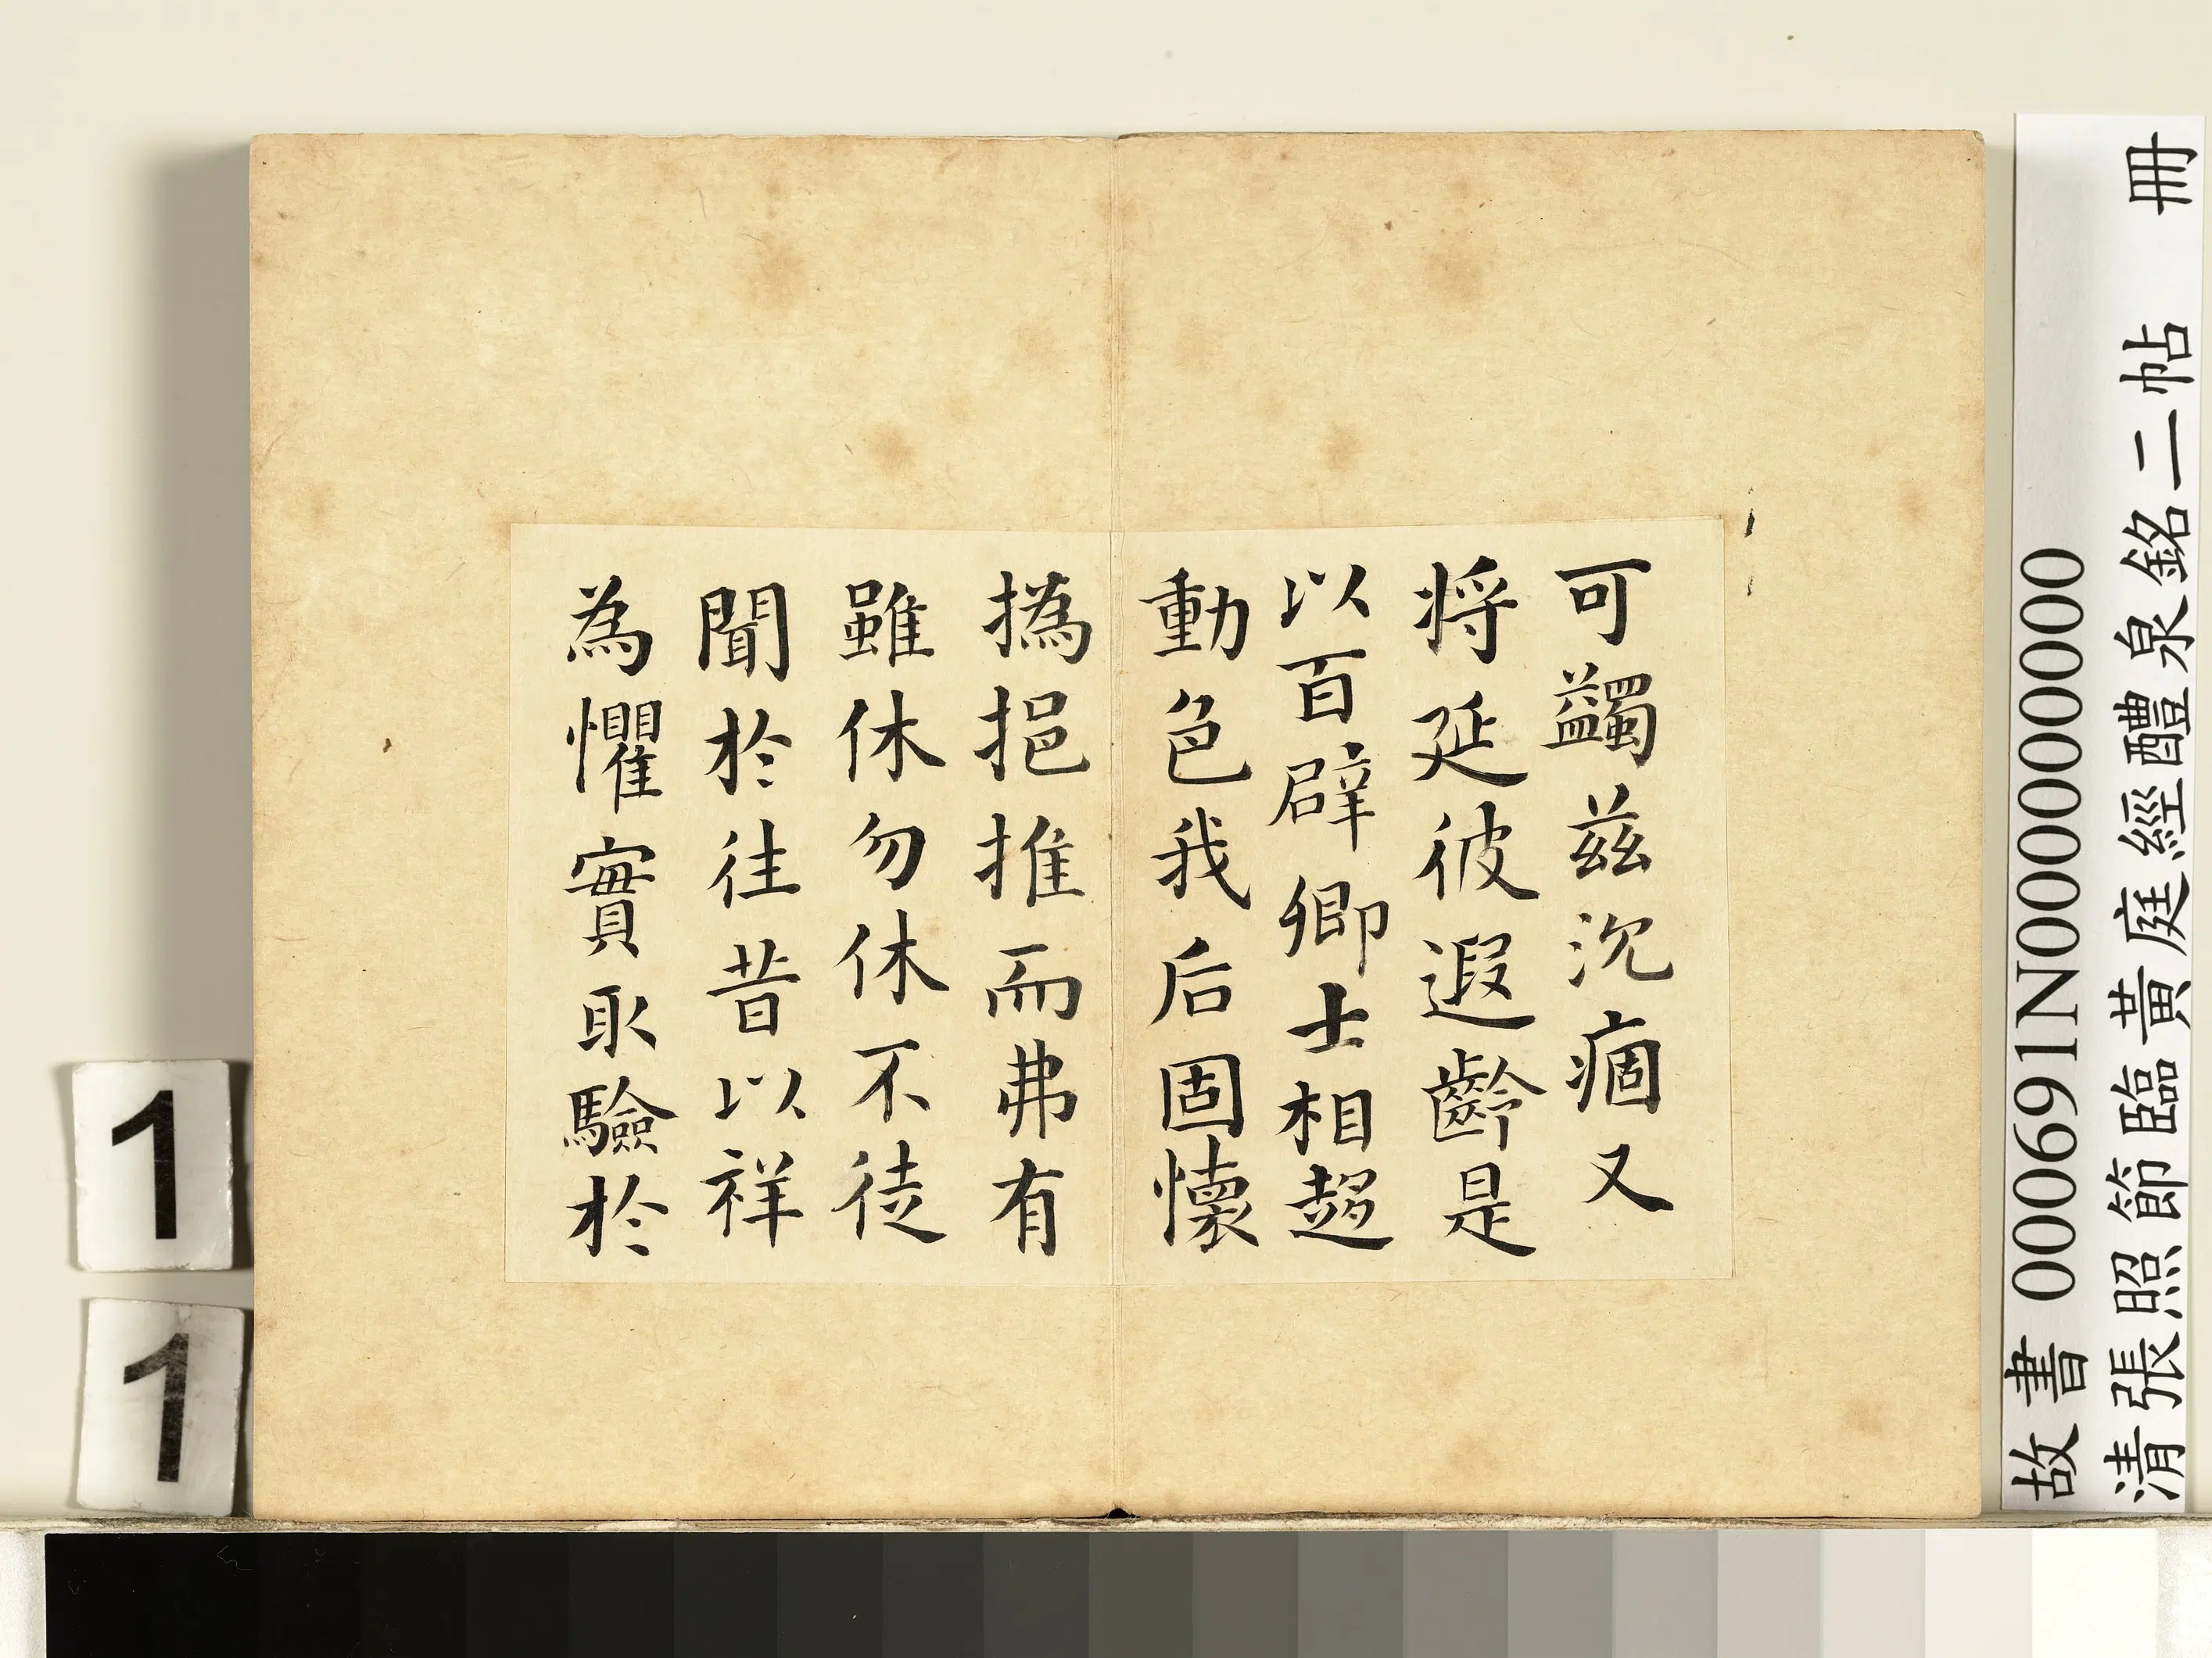 可蠲茲沉痼又
将延彼遐齡是
以百辟卿士相趍
動色我后固懷
撝挹推而弗有
雖休勿休不徒
聞於往昔以祥
為懼實取驗於
故書 000691N000000000
清張照節臨黃庭經醴泉銘二帖 冊
1
1